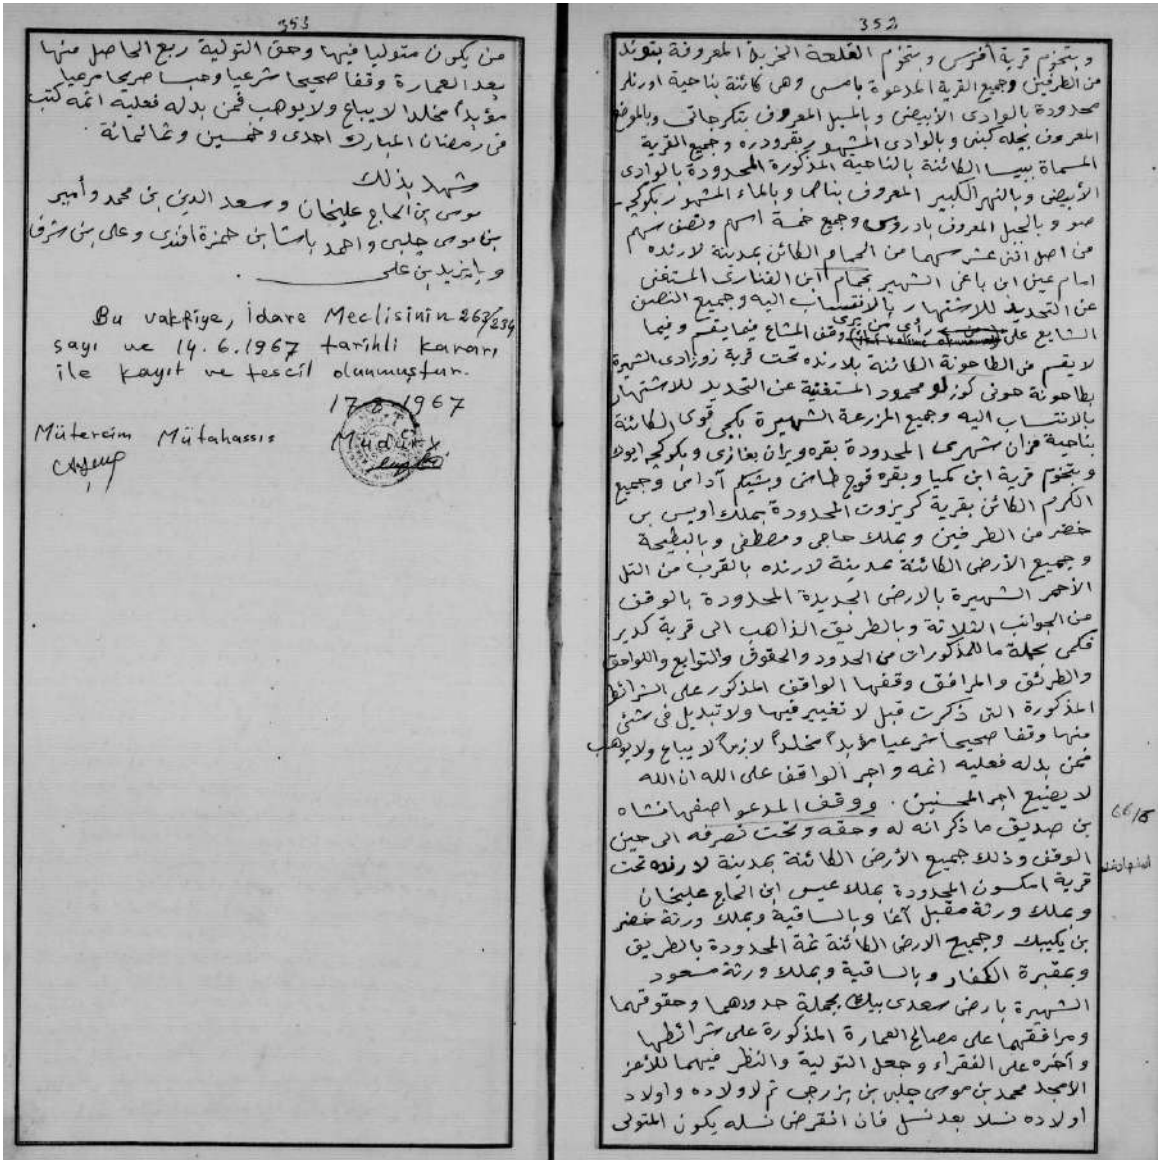 352
وبتخوم قرية افرس وبتخوم القلعة الخربة المعروفة بتوند
من الطرفين وجميع القرية المدعوة بامسى وهى كائنة بناحية اورنلر
محدودة بالوادى الأبيض وبالمسيل المعروف بتكرجاتى وبالموضع
المعروف بجله كبنى وبالوادى المشهور بقرودره وجميع القرية
المسماة ببيسا الكائنة بالناحية المذكورة المحدودة بالوادى
الأبيض وبالنهر الكبير المعروف بناصا وبالماء المشهور بكوكجه
صو وبالجبل المعروف بادروس وجميع خمسة اسهم ونصف سهم
من اصل اثنى عشر سهما من الحمام الكائن بمدينة لارنده
امام عين ابن باغى الشهير بحمام ابن الفنارى المستغنى
عن التحديد للاشتهار بالانتساب اليه وجميع النصف
الشايع على رأى من يرى وقف المشاع فيما يقسم وفيما
لا يقسم من الطاحونة الكائنة بلارنده تحت قرية زوزادى الشهيرة
بطاحونة حونى كوزلو محمود المستغنية عن التحديد للاشتهار
بالانتساب اليه وجميع المزرعة الشهيرة بكجى قوى الكائنة
بناحية قزان شهرى المحدودة بقره ويران بغازى وبكوكجه ايوك
وبتخوم قرية ابن كميا وبقره قوج طاش وبشيكم آداسى وجميع
الكرم الكائن بقرية كريزوت المحدودة بملك اويس بن
خضر من الطرفين وبملك حاجى ومصطفى وبالبطيحة
وجميع الأرض الكائنة بمدينة لارنده بالقرب من التل
الأحمر الشهيرة بالارض الجديدة المحدودة بالوقف
من الجوانب الثلاثة وبالطريق الذاهب الى قرية كدير
فكمى بجملة ما للمذكورات من الحدود والحقوق والتوابع واللواحق
والطرئق والمرافق وقفها الواقف المذكور على الشرائط
المذكورة التى ذكرت قبل لا تغيير فيها ولا تبديل فى شئ
منها وقفا صحيحا شرعيا مؤبداً مخلداً لازماً لا يباع ولا يوهب
فمن بدله فعليه اثمه واجر الواقف على الله ان الله
لا يضيع اجر المحسنين . ووقف المدعو اصفهانشاه
66/5
بن صديق ما ذكر انه له وحقه وتحت تصرفه الى حين
الوقف وذلك جميع الأرض الكائنة بمدينة لارنده تحت
قرية امكسون المحدودة بملك عيسى ابن الحاج عليخان
وبملك ورثة مقبل آغا وبالساقية وبملك ورثة خضر
بن يكيبك وجميع الارض الكائنة ثمة المحدودة بالطريق
وبمقبرة الكفار وبالساقية وبملك ورثة مسعود
الشهيرة بارض سعدى بيك بجملة حدودهما وحقوقهما
ومرافقهما على مصالح العمارة المذكورة على شرائطها
وآخره على الفقراء وجعل التولية والنظر فيهما للأعز
الأمجد محمد بن موسى چلبى بن بزرجب ثم لاولاده واولاد
اولاده نسلا بعد نسل فان انقرض نسله يكون المتولى
353
من يكون متوليا فيها وحق التولية ربع الحاصل منها
بعد العمارة وقفا صحيحا شرعيا وحبسا صريحا مرعيا
مؤبداً مخلدا لا يباع ولا يوهب فمن بدله فعليه اثمه كتب
فى رمضان المبارك احدى وخمسين وثمانمائة .
شهد بذلك
موسى بن الحاج عليخان وسعد الدين بن محمد وأمير
بن موسى چلبى واحمد باشا بن حمزة افندى وعلى بن شرف
وبايزيد بن على .
Bu vakfiye, İdare Meclisinin 263/234
sayı ve 14.6.1967 tarihli kararı
ile kayıt ve tescil olunmuştur.
17.8.1967
Mütercim Mütahassıs Müdürü